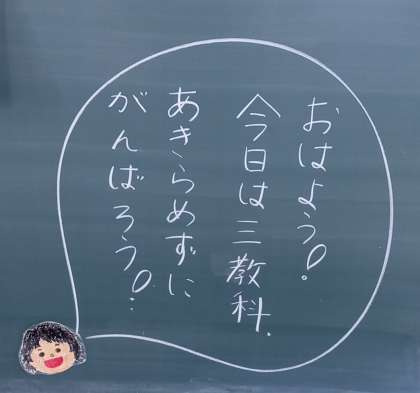 おはよう!
今日は三教科.
あきらめずに
がんばろう!